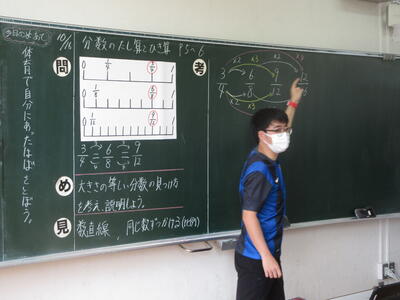 今日のめあて
体育で自分にあったはばをとぼう。
10/16
分数のたし算とひき算 P5~6
問
考
0 1/4 3/4 1
0 1/8 6/8 1
0 1/12 9/12 1
3/4 = 6/8 = 9/12
め
大きさの等しい分数の見つけ方
を考え、説明しよう。
見
数直線、同じ数ずつかける
3/4 6/8 9/12 12/16
×2 ×3
×2 ×3